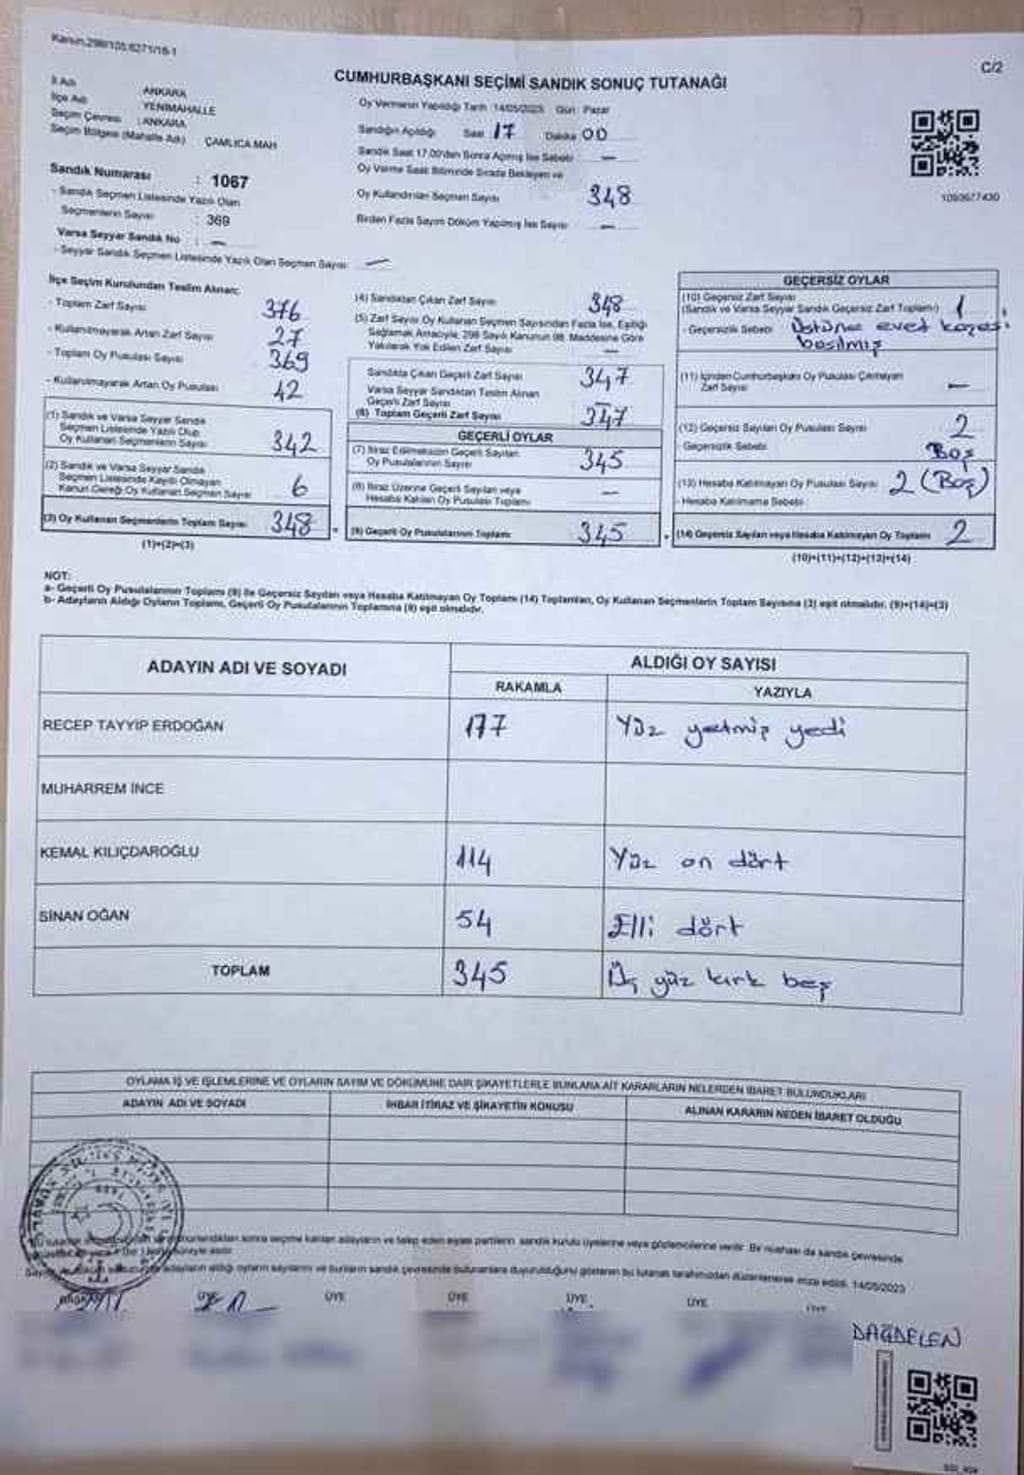 Kanun.298/105.6271/16-1
C/2
CUMHURBAŞKANI SEÇİMİ SANDIK SONUÇ TUTANAĞI
İl Adı ANKARA
İlçe Adı YENİMAHALLE
Seçim Çevresi : ANKARA
Seçim Bölgesi (Mahalle Adı) ÇAMLICA MAH
Sandık Numarası : 1067
- Sandık Seçmen Listesinde Yazılı Olan
Seçmenlerin Sayısı : 369
Varsa Seyyar Sandık No : —
- Seyyar Sandık Seçmen Listesinde Yazılı Olan Seçmen Sayısı —
Oy Vermenin Yapıldığı Tarih 14/05/2023 Gün : Pazar
Sandığın Açıldığı Saat 17 Dakika 00
Sandık Saat 17.00'den Sonra Açılmış İse Sebebi —
Oy Verme Saati Bitiminde Sırada Bekleyen ve
Oy Kullandırılan Seçmen Sayısı 348
Birden Fazla Sayım Döküm Yapılmış İse Sayısı —
1093677430
İlçe Seçim Kurulundan Teslim Alınan:
- Toplam Zarf Sayısı 376
- Kullanılmayarak Artan Zarf Sayısı 27
- Toplam Oy Pusulası Sayısı 369
- Kullanılmayarak Artan Oy Pusulası 42
(1) Sandık ve Varsa Seyyar Sandık
Seçmen Listesinde Yazılı Olup
Oy Kullanan Seçmenlerin Sayısı 342
(2) Sandık ve Varsa Seyyar Sandık
Seçmen Listesinde Kayıtlı Olmayan
Kanun Gereği Oy Kullanan Seçmen Sayısı 6
(3) Oy Kullanan Seçmenlerin Toplam Sayısı 348
(1)+(2)=(3)
(4) Sandıktan Çıkan Zarf Sayısı 348
(5) Zarf Sayısı Oy Kullanan Seçmen Sayısından Fazla İse, Eşitliği
Sağlamak Amacıyla, 298 Sayılı Kanunun 98. Maddesine Göre
Yakılarak Yok Edilen Zarf Sayısı —
Sandıkta Çıkan Geçerli Zarf Sayısı 347
Varsa Seyyar Sandıktan Teslim Alınan
Geçerli Zarf Sayısı —
(6) Toplam Geçerli Zarf Sayısı 347
GEÇERLİ OYLAR
(7) İtiraz Edilmeksizin Geçerli Sayılan
Oy Pusulalarının Sayısı 345
(8) İtiraz Üzerine Geçerli Sayılan veya
Hesaba Katılan Oy Pusulası Toplamı —
(9) Geçerli Oy Pusulalarının Toplamı 345
GEÇERSİZ OYLAR
(10) Geçersiz Zarf Sayısı
(Sandık ve Varsa Seyyar Sandık Geçersiz Zarf Toplamı) 1
- Geçersizlik Sebebi Üstüne evet kaşesi
basılmış
(11) İçinden Cumhurbaşkanı Oy Pusulası Çıkmayan
Zarf Sayısı —
(12) Geçersiz Sayılan Oy Pusulası Sayısı 2
- Geçersizlik Sebebi Boş
(13) Hesaba Katılmayan Oy Pusulası Sayısı 2 (Boş)
- Hesaba Katılmama Sebebi
(14) Geçersiz Sayılan veya Hesaba Katılmayan Oy Toplamı 2
(10)+(11)+(12)+(13)=(14)
NOT:
a- Geçerli Oy Pusulalarının Toplamı (9) ile Geçersiz Sayılan veya Hesaba Katılmayan Oy Toplamı (14) Toplamları, Oy Kullanan Seçmenlerin Toplam Sayısına (3) eşit olmalıdır. (9)+(14)=(3)
b- Adayların Aldığı Oyların Toplamı, Geçerli Oy Pusulalarının Toplamına (9) eşit olmalıdır.
ADAYIN ADI VE SOYADI ALDIĞI OY SAYISI
RAKAMLA YAZIYLA
RECEP TAYYİP ERDOĞAN 177 Yüz yetmiş yedi
MUHARREM İNCE
KEMAL KILIÇDAROĞLU 114 Yüz on dört
SİNAN OĞAN 54 Elli dört
TOPLAM 345 Üç yüz kırk beş
OYLAMA İŞ VE İŞLEMLERİNE VE OYLARIN SAYIM VE DÖKÜMÜNE DAİR ŞİKAYETLERLE BUNLARA AİT KARARLARIN NELERDEN İBARET BULUNDUKLARI
ADAYIN ADI VE SOYADI İHBAR İTİRAZ VE ŞİKAYETİN KONUSU ALINAN KARARIN NEDEN İBARET OLDUĞU
sonra seçime katılan adayların ve talep eden siyasi partilerin sandık kurulu üyelerine veya gözlemcilerine verilir. Bir nüshası da sandık çevresinde
adayların aldığı oyların sayılarını ve bunların sandık çevresinde bulunanlara duyurulduğunu gösteren bu tutanak tarafımızdan düzenlenerek imza edildi. 14/05/2023
BAŞKAN ÜYE ÜYE ÜYE ÜYE ÜYE ÜYE
DAĞDELEN